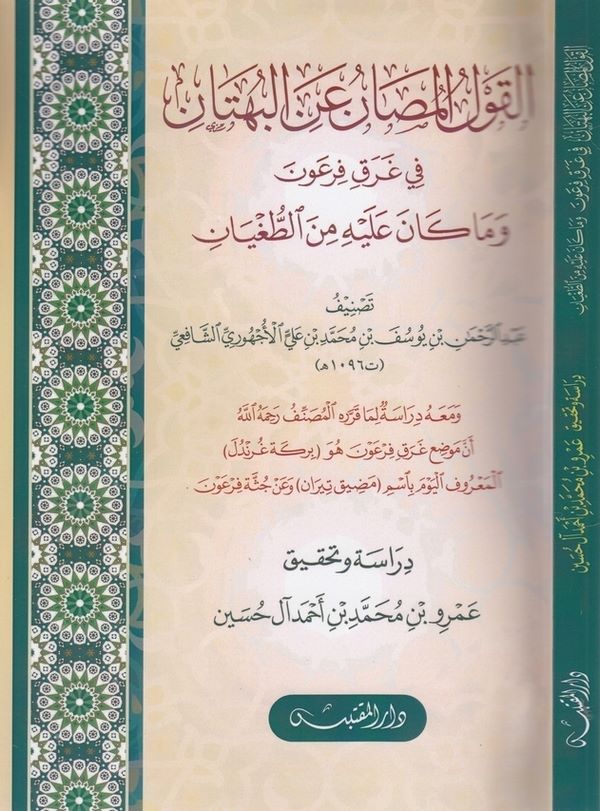 القَوْلُ المُصَانُ عَنِ البُهتَانِ
فِي غَرَقِ فِرعَونَ
وَمَا كَانَ عَلَيْهِ مِنَ الطُّغْيَانِ
تَصْنِيْفُ
عَبْدِ الرَّحْمٰنِ بْنِ يُوسُفَ بْنِ مُحَمَّدِ بْنِ عَلِيٍّ الْأُجْهُورِيِّ الشَّافِعِيِّ
(ت١٠٩٦هـ)
وَمَعَهُ دِرَاسَةٌ لِمَا قَرَّرَهُ الْمُصَنِّفُ رَحِمَهُ اللهُ
أَنَّ مَوْضِعَ غَرَقِ فِرْعَوْنَ هُوَ (بِركَة غُرُنْدُلَ)
الْمَعْرُوفِ الْيَوْمَ بِاسْمِ (مَضِيقِ تِيرَان) وَعَنْ جُثَّةِ فِرْعَوْنَ
دِرَاسَة وَتحقِيق
عَمْرِو بْنِ مُحَمَّدِ بْنِ أَحْمَدَ آل حُسَين
دار المقتبس
القَوْلُ المُصَانُ عَنِ البُهتَانِ فِي غَرَقِ فِرعَونَ وَمَا كَانَ عَلَيْهِ مِنَ الطُّغْيَانِ
دِرَاسَة وَتحقِيق عَمْرِو بْنِ مُحَمَّدِ بْنِ أَحْمَدَ آل حُسَين
دار المقتبس